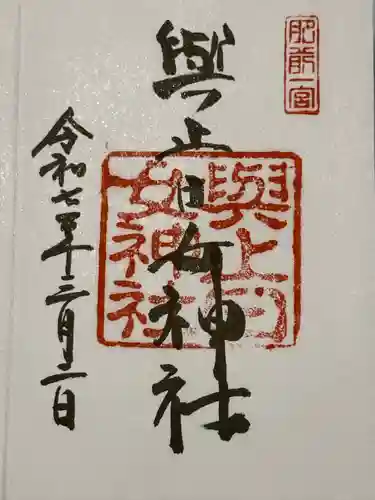 肥前一宮
與止日女神社
與止日女神社
令和七年十二月二日